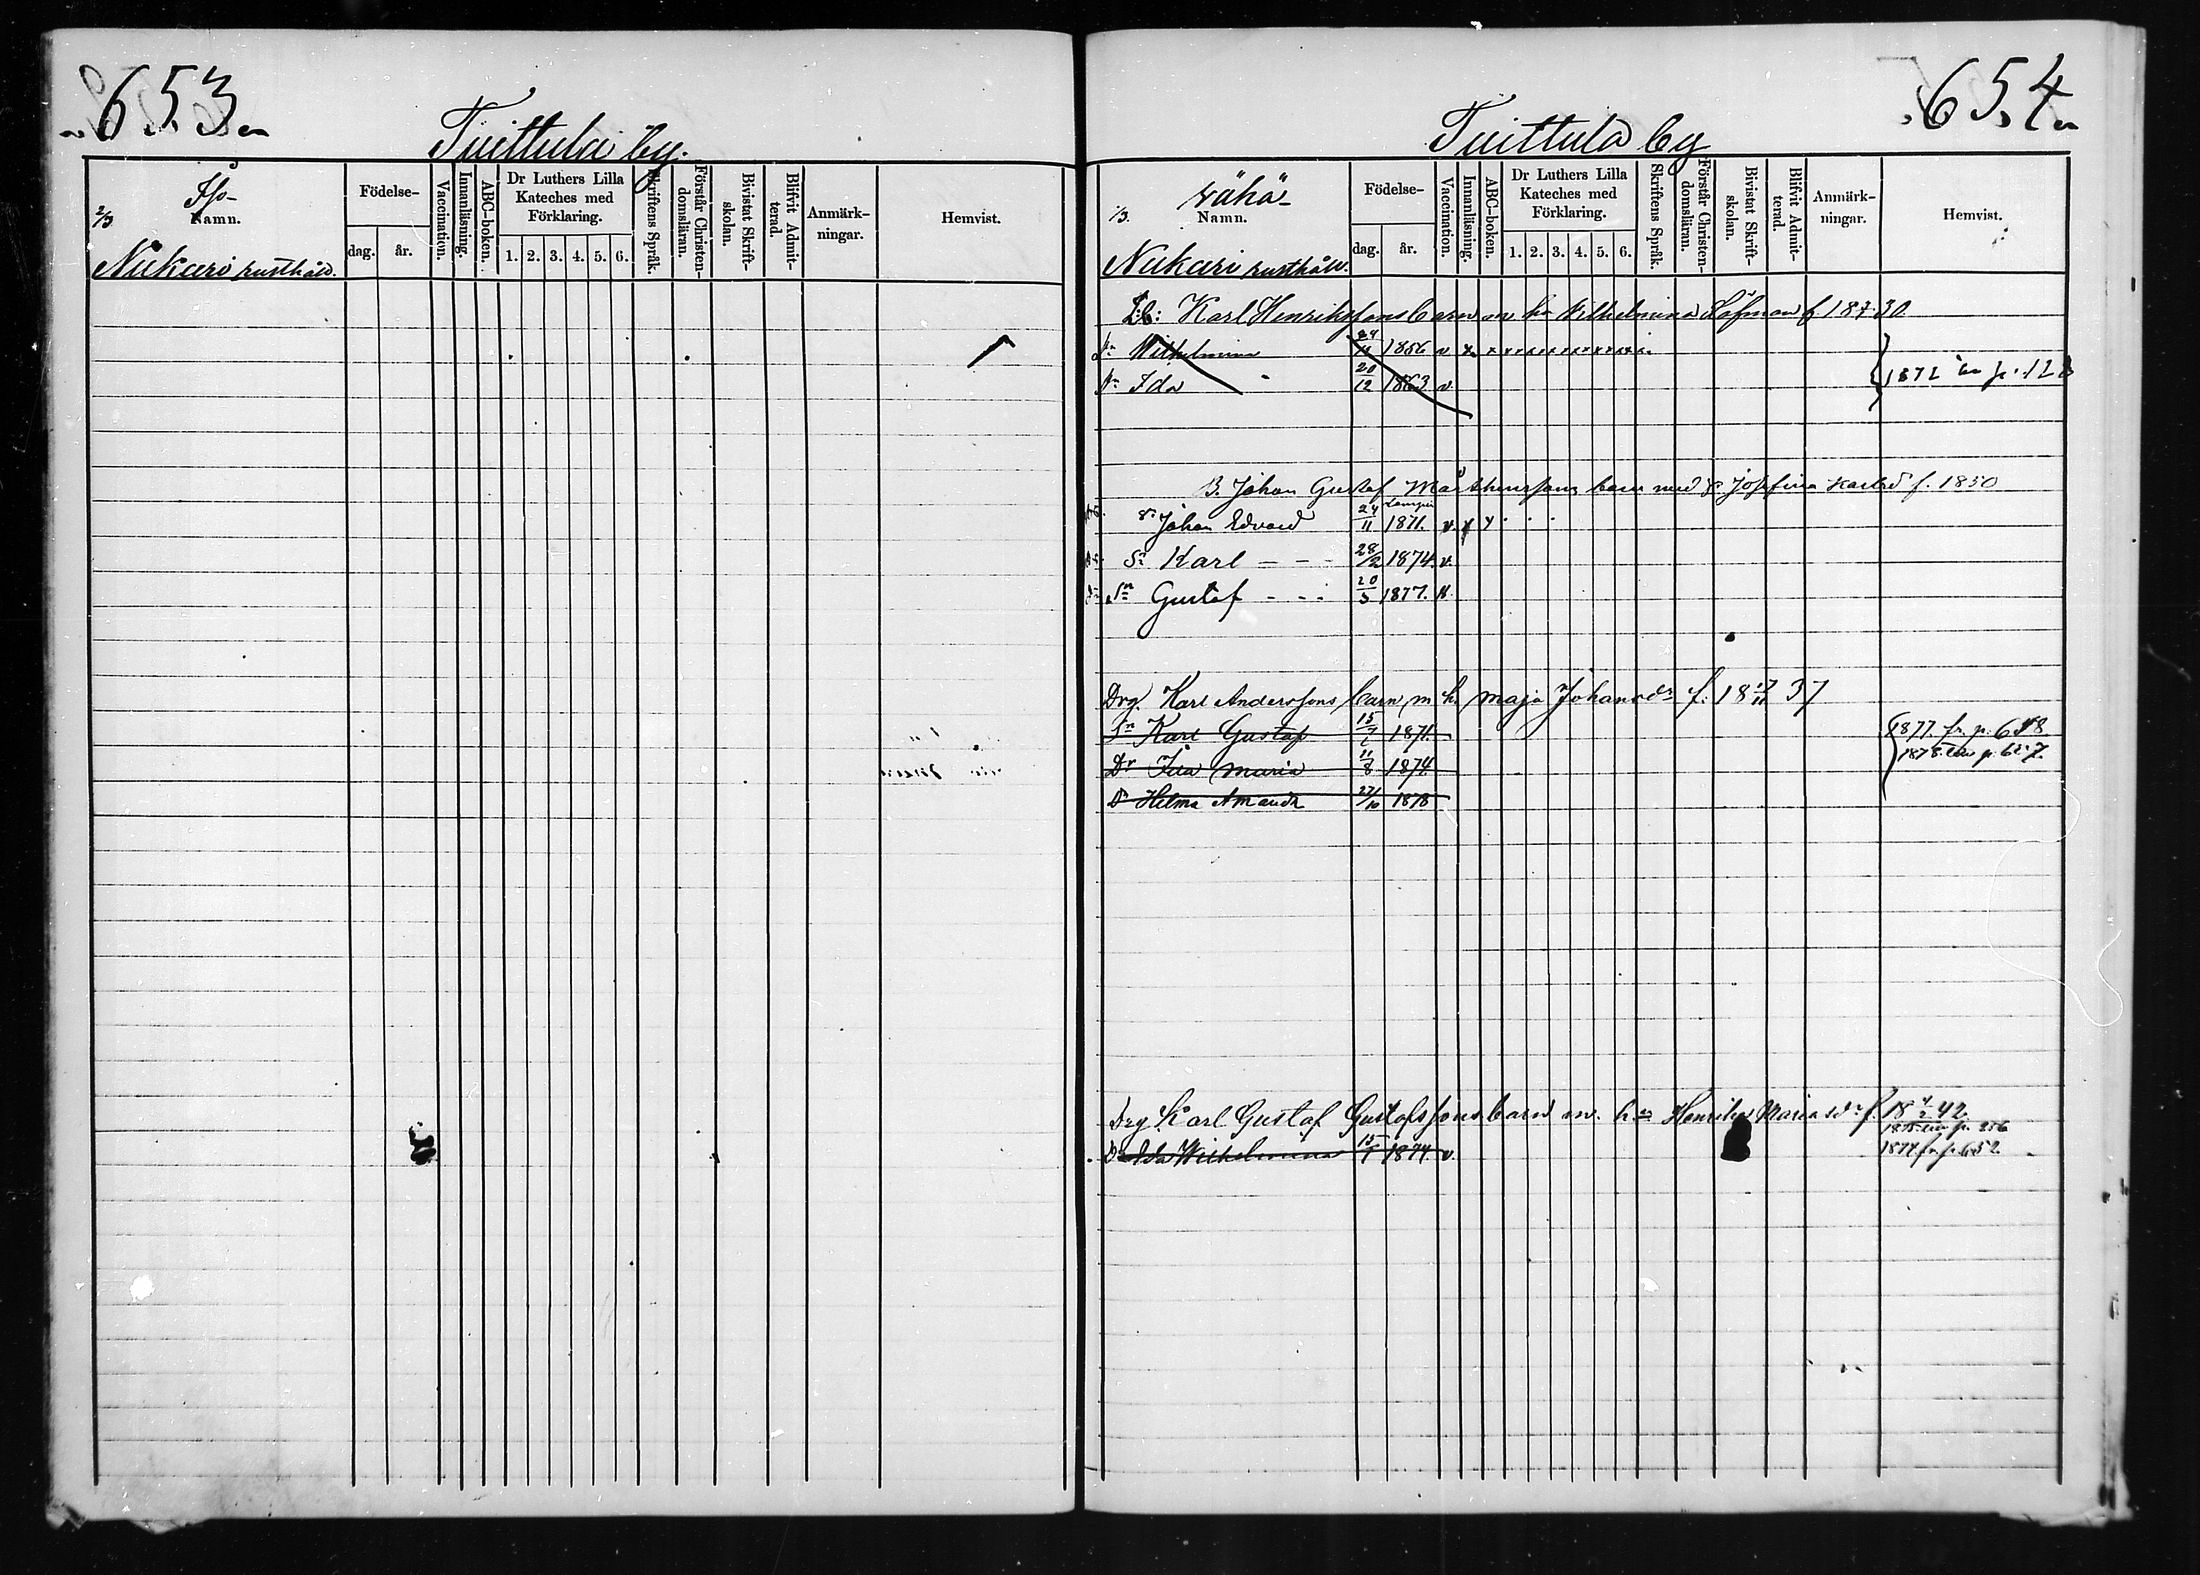 653
Tuittula by.
2/3
Iso-
Namn.
Födelse-
dag.
år.
Vaccination.
Innanläsning.
ABC-boken.
Dr Luthers Lilla
Kateches med
Förklaring.
1. 2. 3. 4. 5. 6.
Skriftens Språk.
Förstår Christen-
domsläran.
Bivistat Skrift-
skolan.
Blifvit Admit-
terad.
Anmärk-
ningar.
Hemvist.
Nukari rusthåld.
654
Tuittula by
1/3.
Vähä-
Namn.
Födelse-
dag.
år.
Vaccination.
Innanläsning.
ABC-boken.
Dr Luthers Lilla
Kateches med
Förklaring.
1. 2. 3. 4. 5. 6.
Skriftens Språk.
Förstår Christen-
domsläran.
Bivistat Skrift-
skolan.
Blifvit Admit-
terad.
Anmärk-
ningar.
Hemvist.
Nukari rusthåld.
Karl Henrikssons barn m hu Vilhelmina Löfman f. 30
Wilhelmina 1856 v x x x x x x x x x x x x
Ida " 20/12 1863 v.
B. Johan Gustaf barn med Josefina Karlsd f. 1850
Johan Edvard 24/11 1871. v.
Sn Karl - - - 28/2 1874. v.
Sn Gustaf - - - 20/5 1877. v.
Drg. Karl Anderssons barn m h. Maja Johansdr f. 18 37
Sn Karl Gustaf 15/7 1871. 1877. fr. p. 648
Dr Ida Maria 11/8 1874 1878
Dr Hilma Amanda 27/10 1878
Drg Karl Gustaf Gustafssons barn m. h Henrika Mariasdr f. 18 42
Dr Ida Wilhelmina 15/1 1874. v. 1874 fr. p. 652